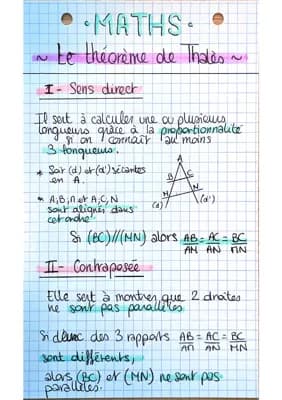 • MATHS •
~ Le théorème de Thalès ~
I - Sens direct
Il sert à calculer une ou plusieurs
longueurs grâce à la proportionnalité
si on connaît au moins
3 longueurs.
* Soit (d) et (d') sécantes
en A.
* A,B,M et A,C,N
sont alignés dans
cet ordre
A
B C
M N
(d) (d')
Si (BC)//(MN) alors AB = AC = BC
AM AN MN
II - Contraposée
Elle sert à montrer que 2 droites
ne sont pas parallèles
Si des 3 rapports AB = AC = BC
AM AN MN
sont différents,
alors (BC) et (MN) ne sont pas
parallèles.